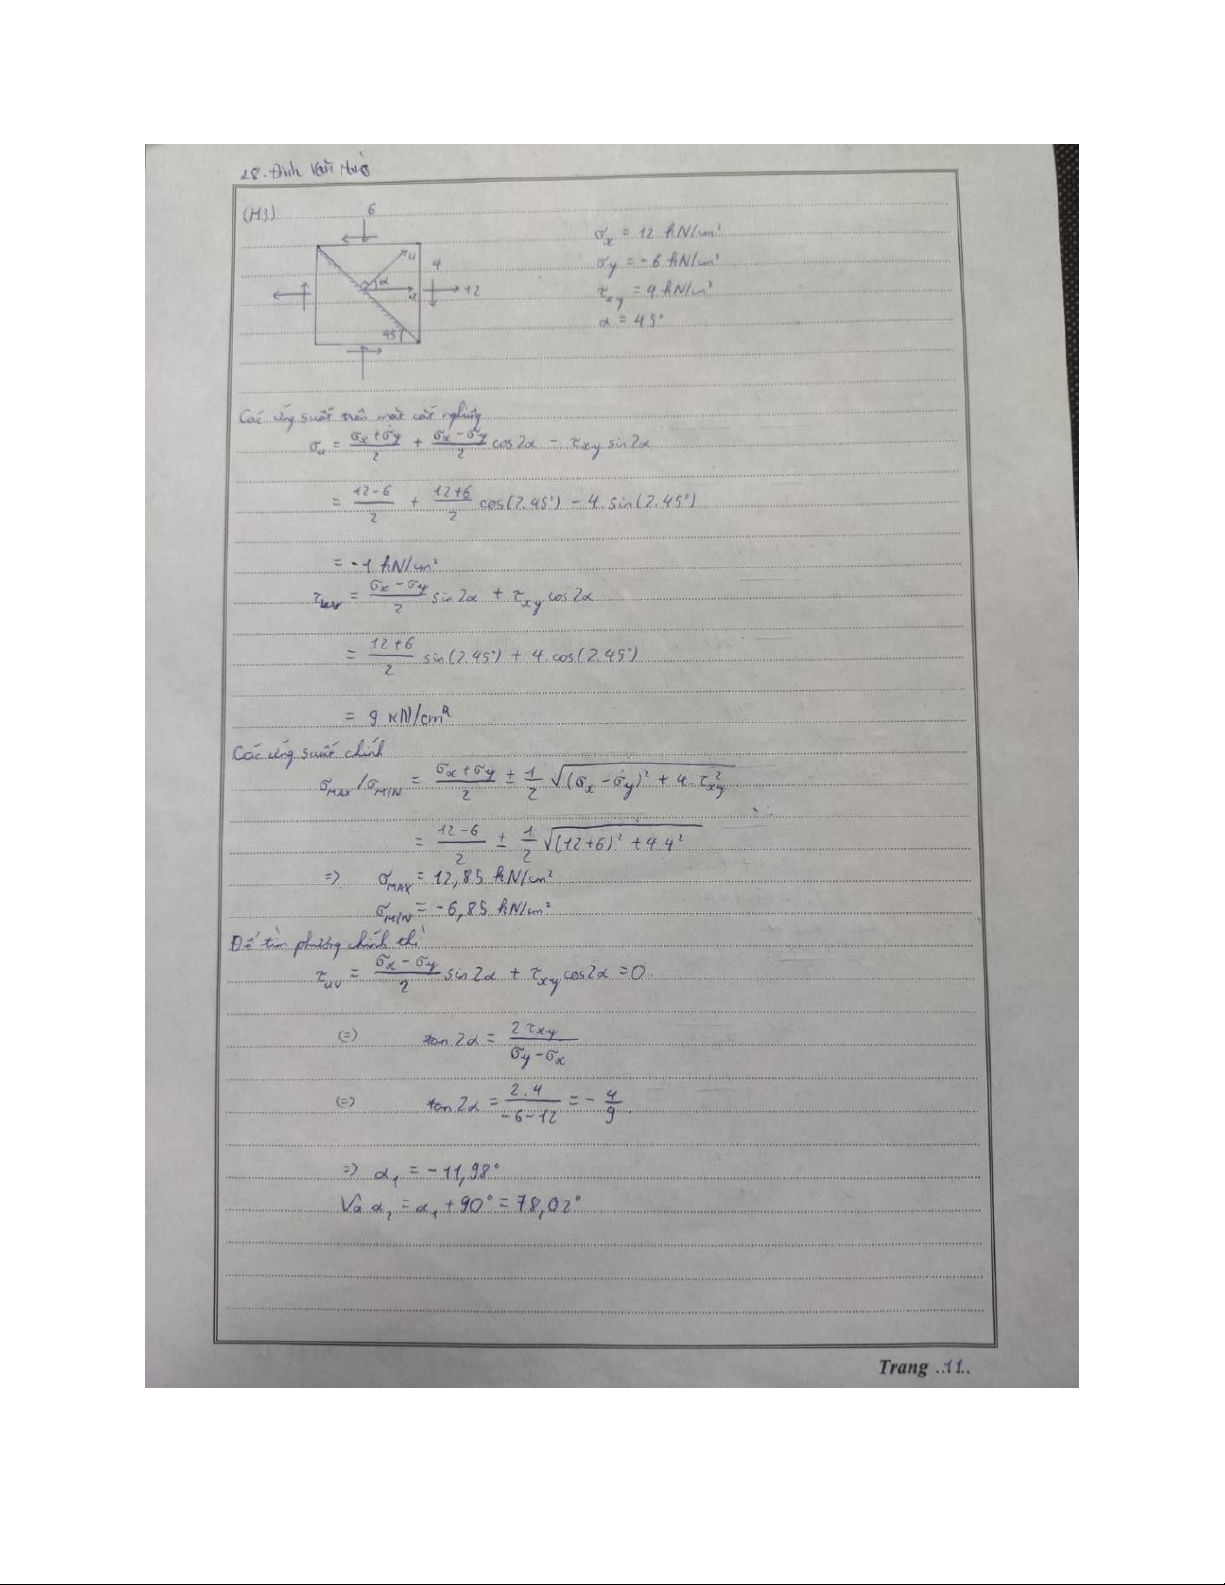 28. Đinh Văn
(H3)
6
σx = 12 kN/cm²
σy = -6 kN/cm²
τxy = 4 kN/cm²
α = 45°
u
4
α
12
45
Các ứng suất trên mặt cắt nghiêng
σu = (σx + σy)/2 + (σx - σy)/2 cos2α - τxy sin2α
= (12-6)/2 + (12+6)/2 cos(2.45°) - 4.sin(2.45°)
= -1 kN/cm²
τuv = (σx - σy)/2 sin2α + τxy cos2α
= (12+6)/2 sin(2.45°) + 4.cos(2.45°)
= 9 kN/cm²
Các ứng suất chính
σMAX/σMIN = (σx + σy)/2 ± 1/2 √((σx - σy)² + 4.τxy²)
= (12-6)/2 ± 1/2 √((12+6)² + 4.4²)
=> σMAX = 12,85 kN/cm²
σMIN = -6,85 kN/cm²
Để tìm phương chính thì
τuv = (σx - σy)/2 sin2α + τxy cos2α = 0.
(=) tan2α = 2τxy/(σy - σx)
(=) tan2α = 2.4/(-6-12) = -4/9
=> α1 = -11,98°
Và α2 = α1 + 90° = 78,02°
Trang ..11..